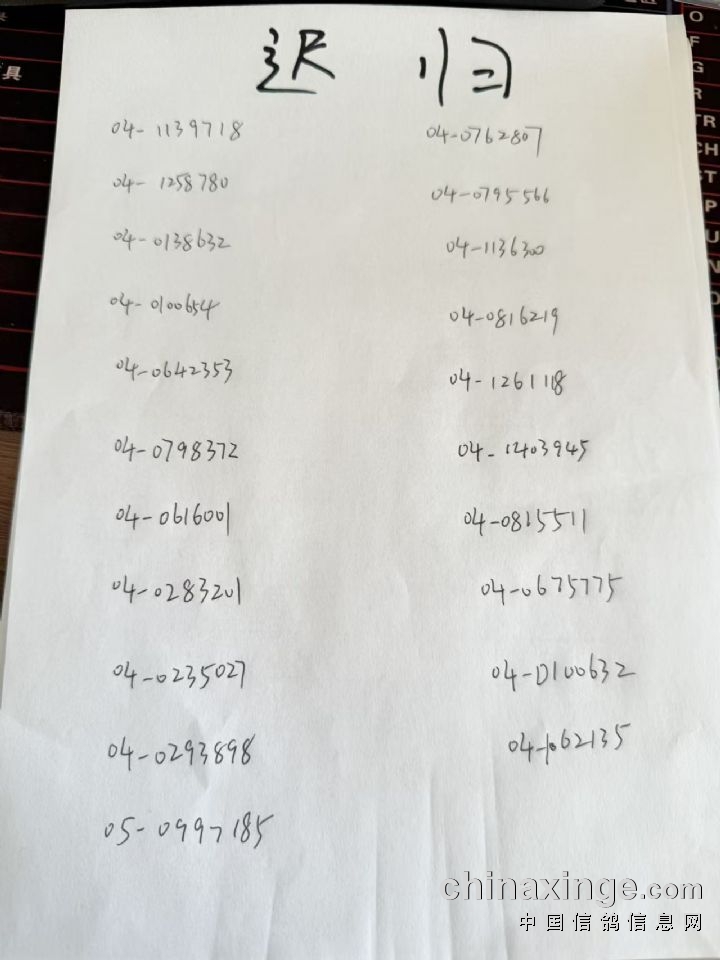 迟归
04-1139718
04-1258780
04-0138632
04-0100654
04-0642353
04-0798372
04-0616001
04-0283201
04-0235027
04-0293898
05-0997185
04-0762807
04-0795566
04-1136300
04-0816219
04-1261118
04-1403945
04-0815511
04-0675775
04-D100632
04-1062135
具
O
F
G
R
TR
CH
CT
P
U
N
chinaxinge.com
中国信鸽信息网